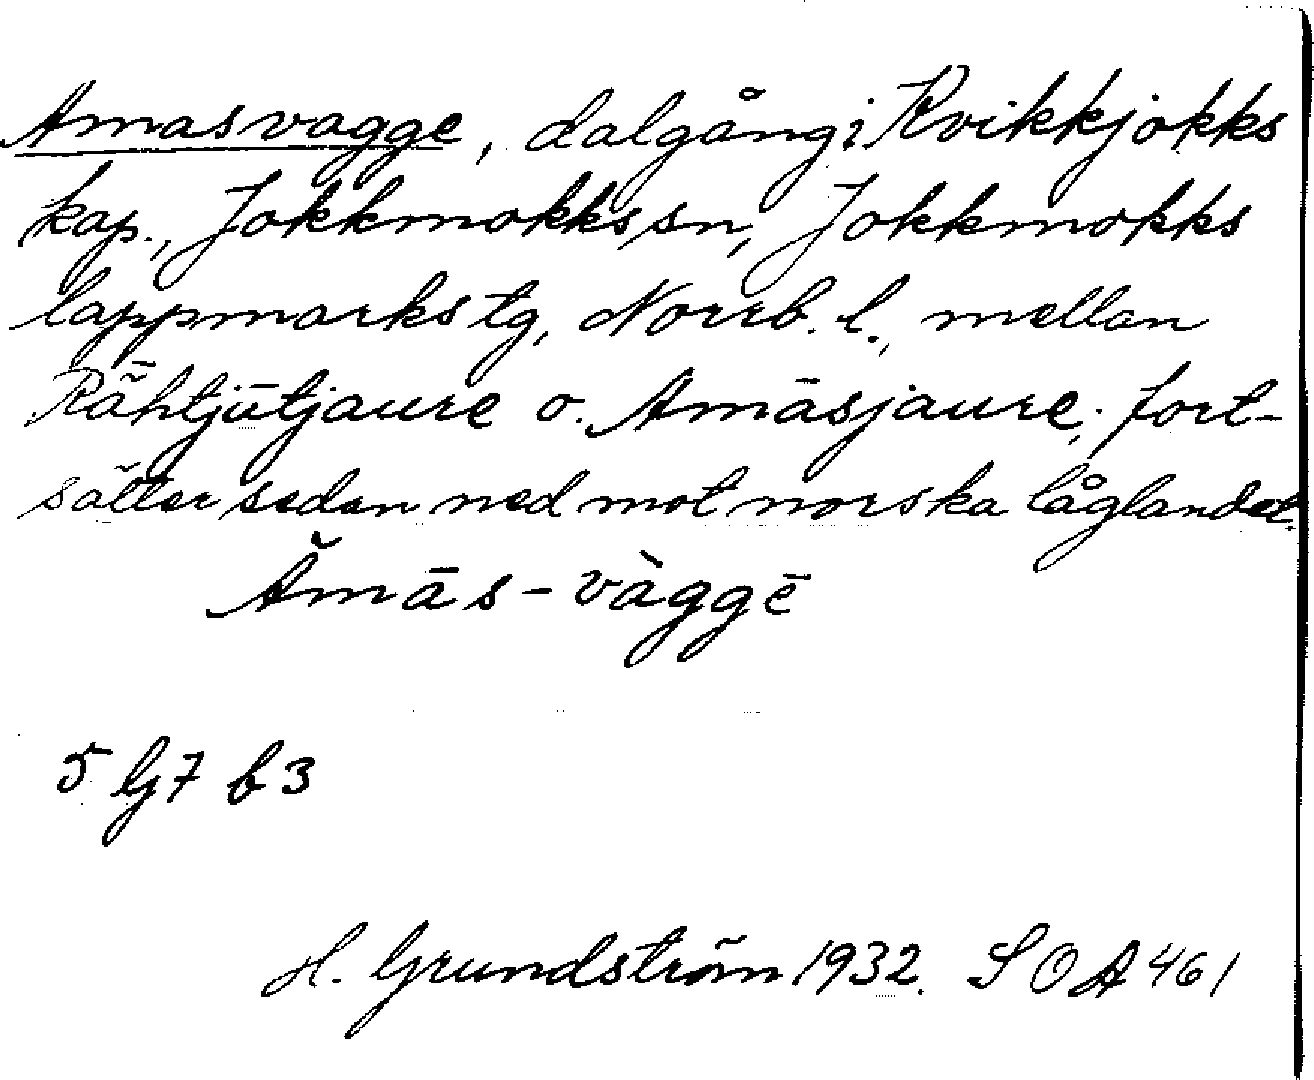 Amasvagge, dalgång i Kvikkjokks
kap., Jokkmokks sn, Jokkmokks
lappmarks tg, Norrb. l., mellan
Rǟhtjūtjaure o. Amāsjaure; fort-
sätter sedan ned mot norska låglandet.
Ămās-vàggē
5 G7 b 3
H. Grundström 1932. SOA 461